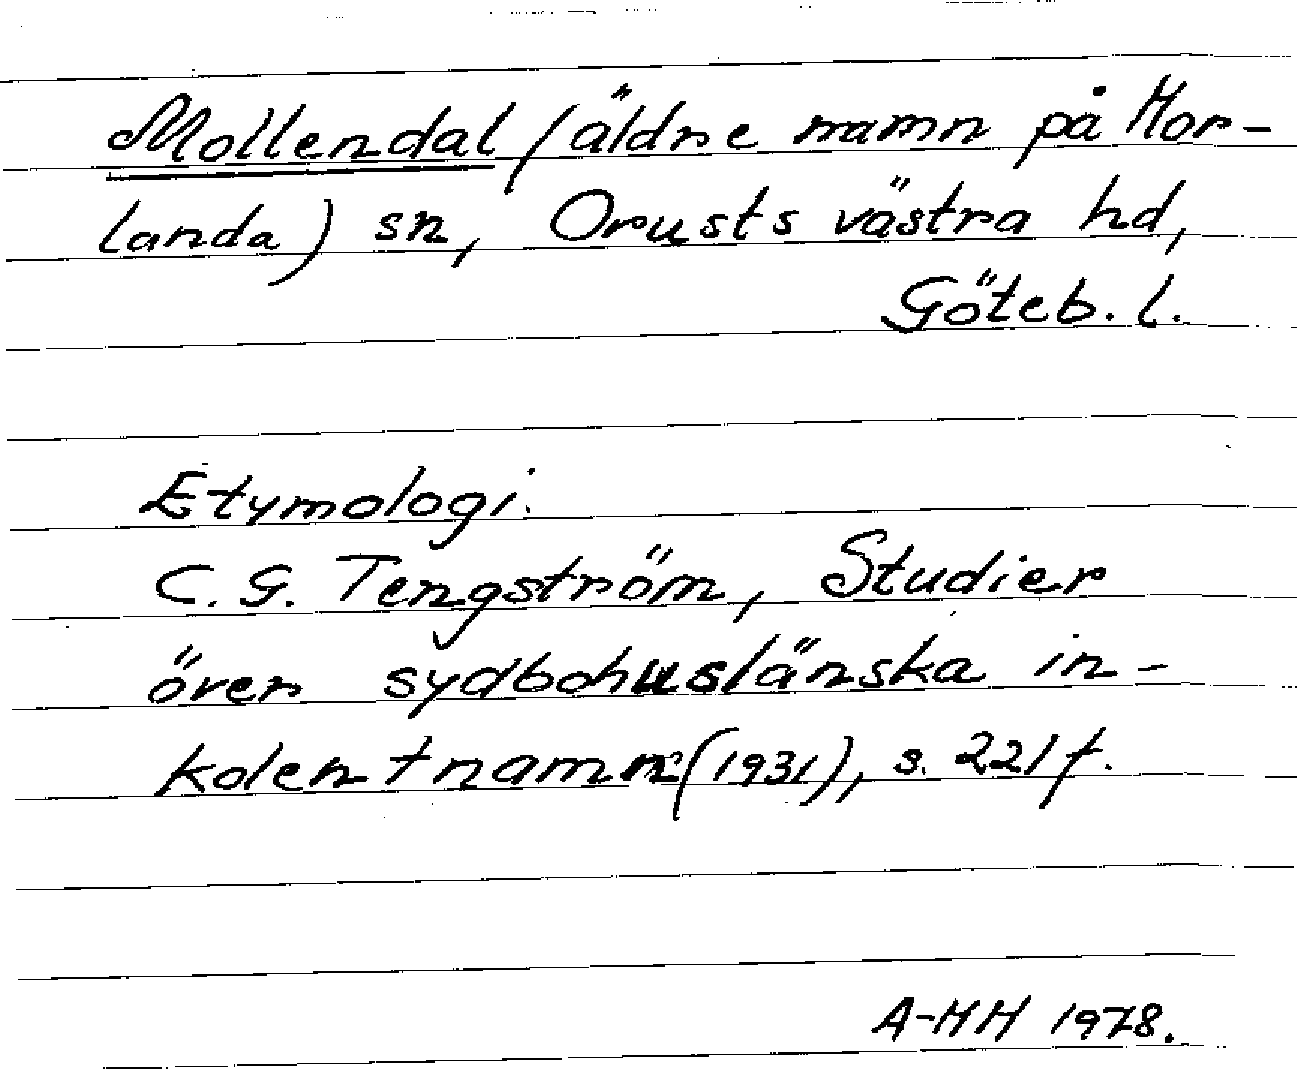 Mollendal (äldre namn på Mor-
landa) sn, Orusts västra hd,
Göteb. l.
Etymologi.
C. G. Tengström, Studier
över sydbohuslänska in-
kolentnamn (1931), s. 221 f.
A-HH 1978.